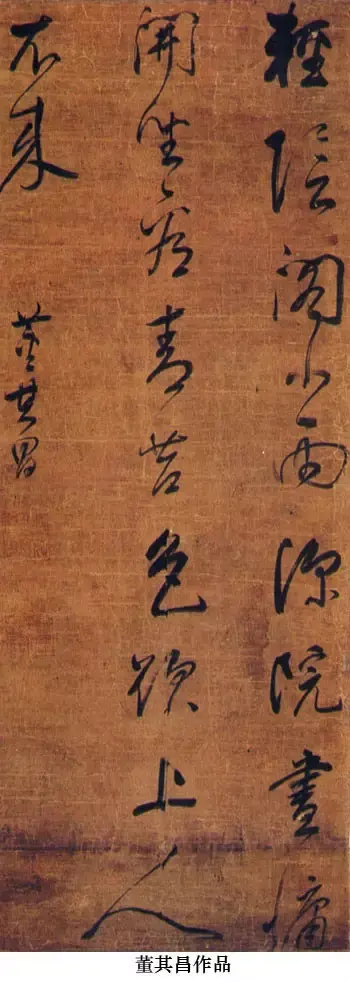 輕陰閣小雨深院晝慵
開坐看青苔色欲上人
衣來
董其昌
董其昌作品